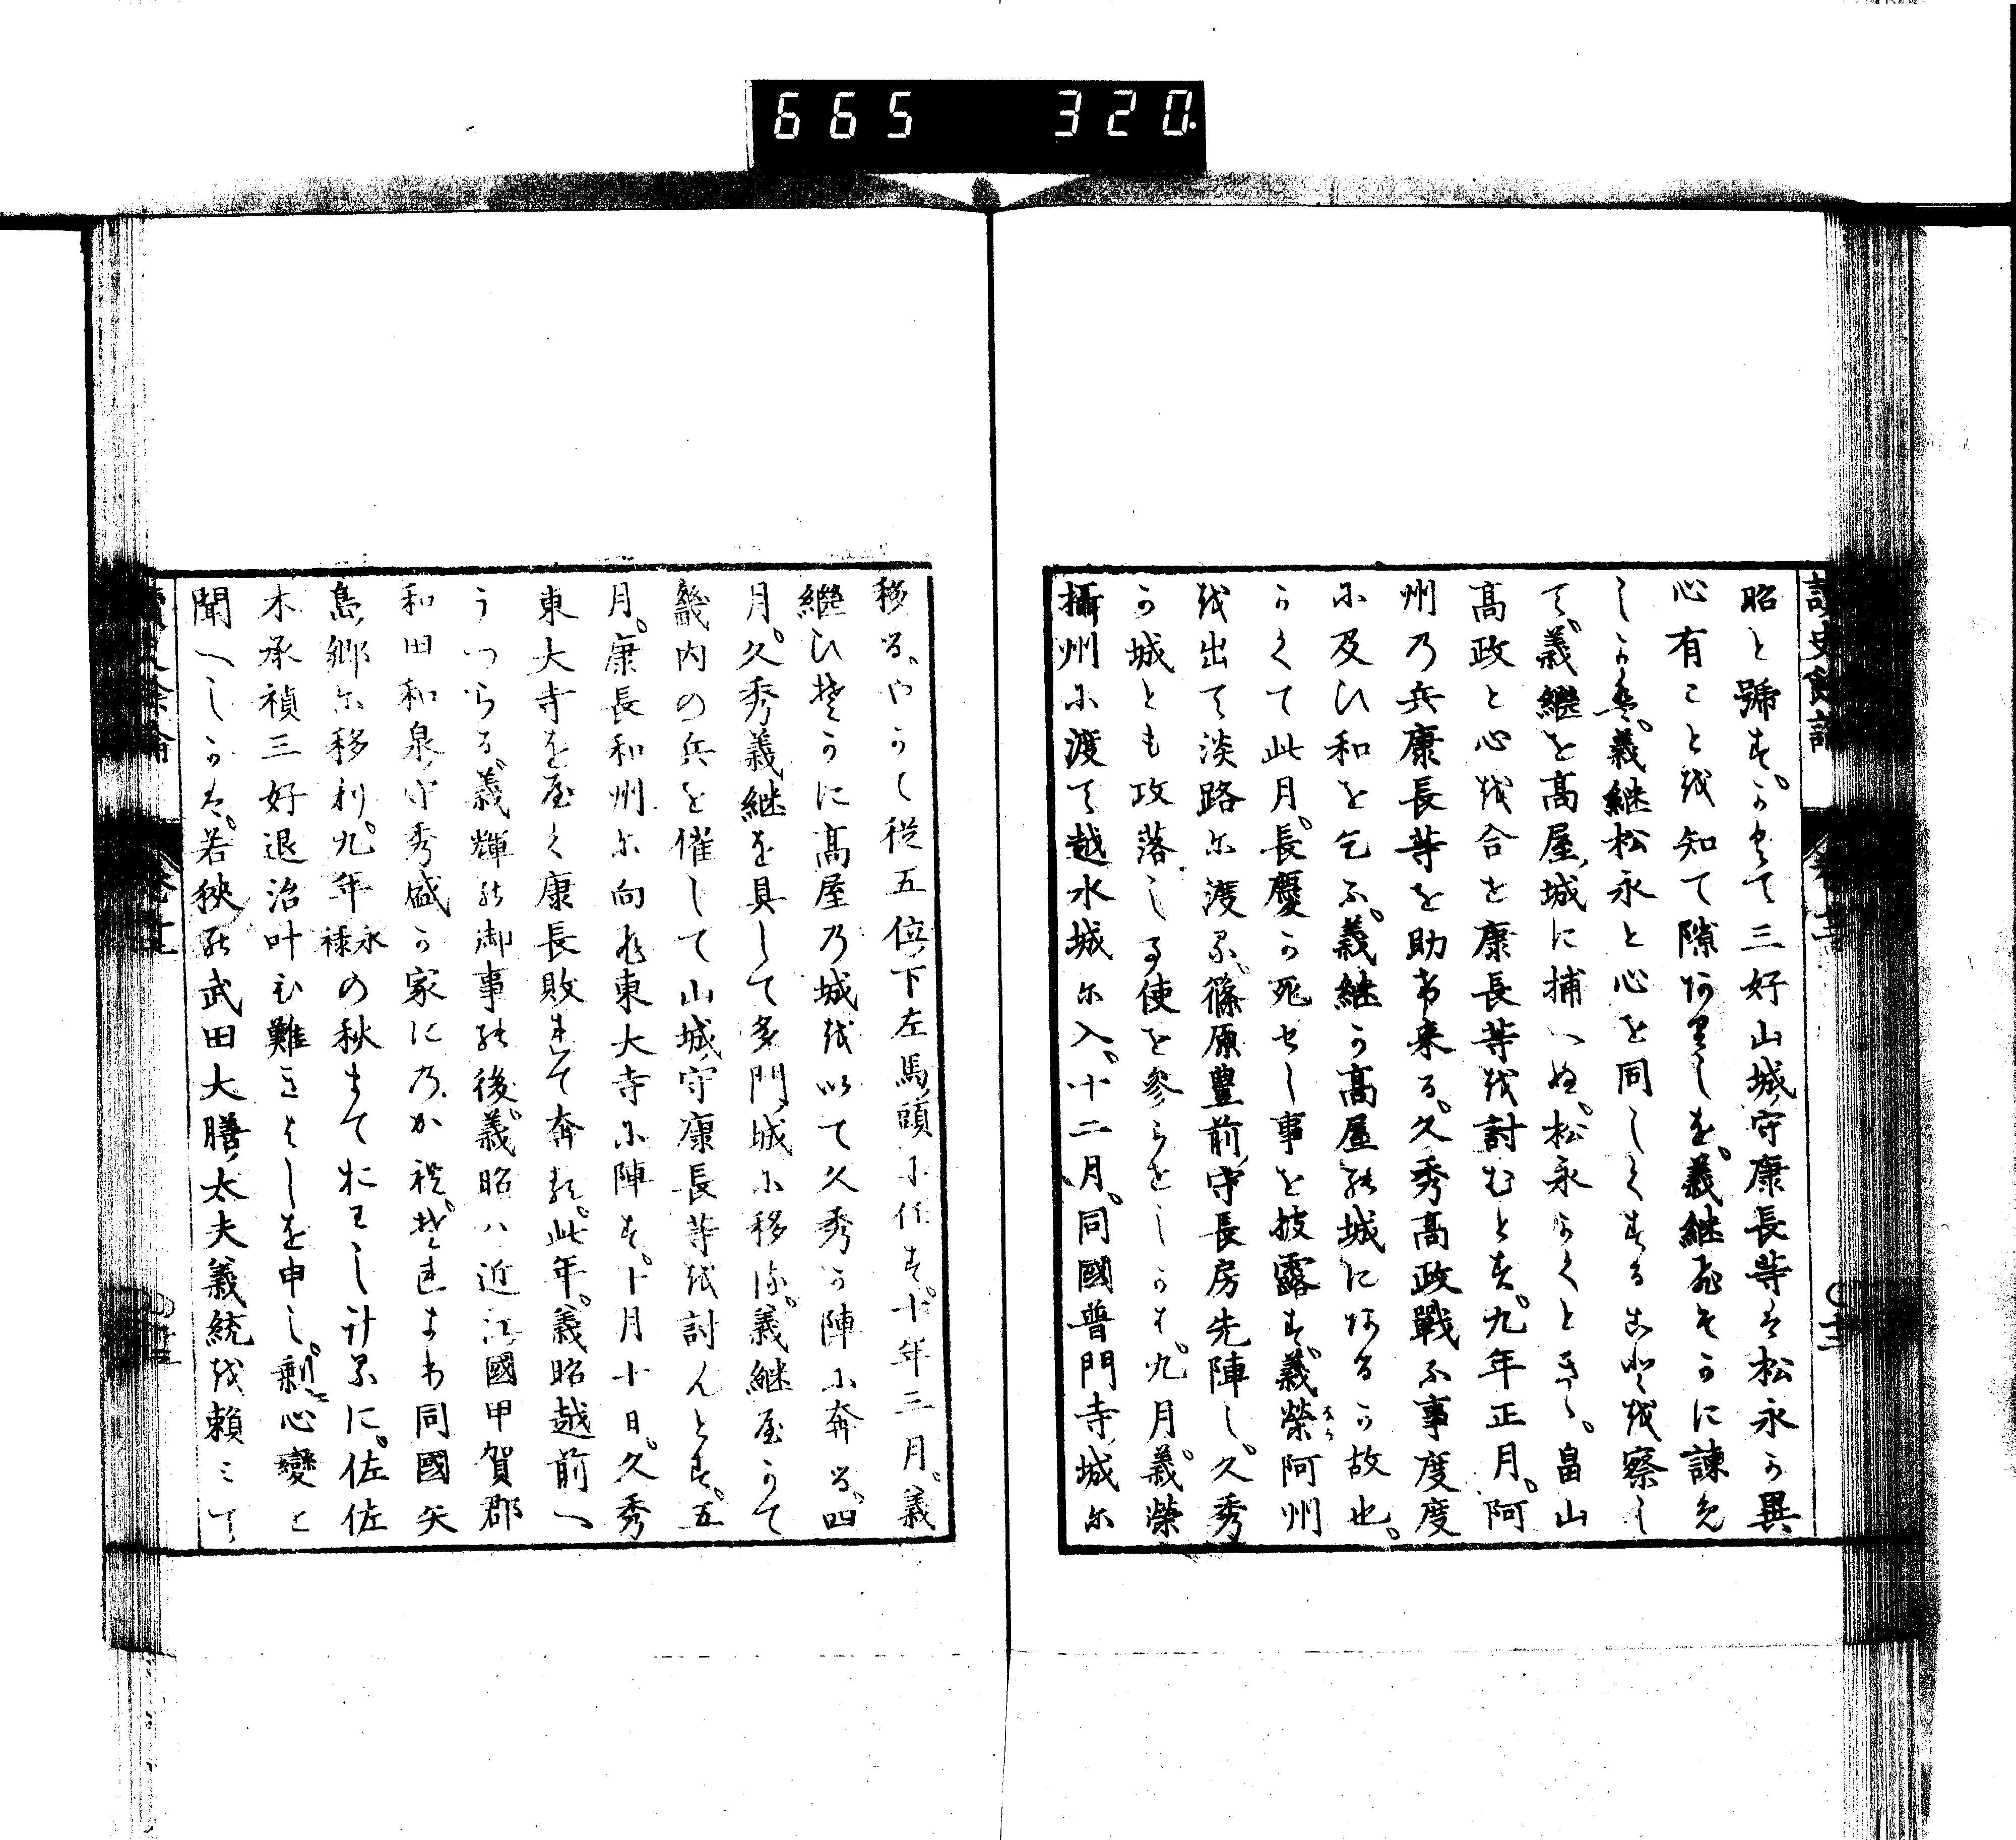 665 320
讀史餘論
昭と號す。かくて三好山城守康長等は松永か異
心有ことを知て隙ありしを。義継ひそかに諫免
しかは。義継松永と心を同しくする心を察し
て。義継を高屋城に捕へぬ。松永かくときゝ。畠山
高政と心を合を康長等を討むとす。九年正月。阿
州乃兵康長等を助け来る。久秀高政戰ふ事度度
に及ひ和を乞ふ。義継か高屋の城にある可故也。
かくて此月。長慶か死せし事を披露す。義榮阿州
を出て淡路に渡る。篠原豊前守長房先陣し。久秀
か城とも攻落し使を参らせしかは。九月。義榮
攝州に渡て越水城に入。十二月。同國普門寺城に
移る。やかて從五位下左馬頭に任す。十年三月。義
繼ひそかに高屋乃城を以て久秀か陣に奔る。四
月。久秀義継を具して多門城に移る。義継屋かて
畿内の兵を催して山城守康長等を討んとす。五
月。康長和州に向ひ東大寺に陣す。十月十日。久秀
東大寺をやく康長敗れて奔る。此年。義昭越前へ
うつらる義輝の御事の後。義昭ハ近江國甲賀郡
和田和泉守秀盛か家にのか禮。それより同國矢
島郷に移利。九年永禄の秋まておはし計るに。佐佐
木承禎三好退治叶ひ難きよしを申し。剰心變と
聞へしかは。若狭の武田大膳太夫義統を頼ミて
讀史餘論